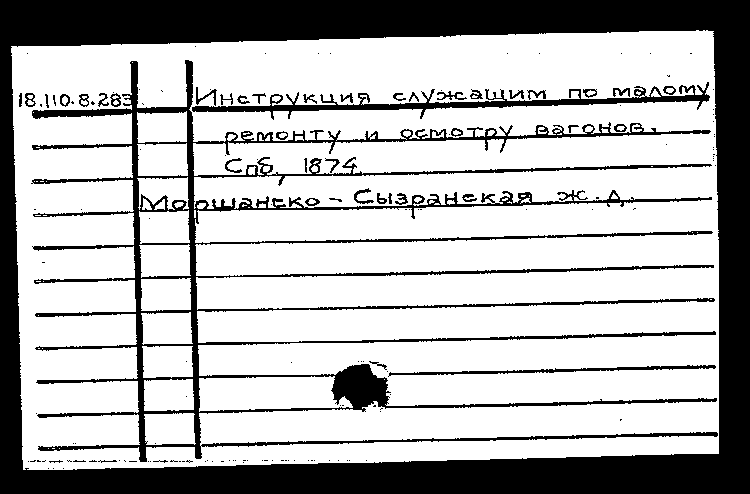 18.110.8.283 Инструкция служащим по малому
ремонту и осмотру вагонов.
Спб, 1874
Моршанско - Сызранская ж.д.